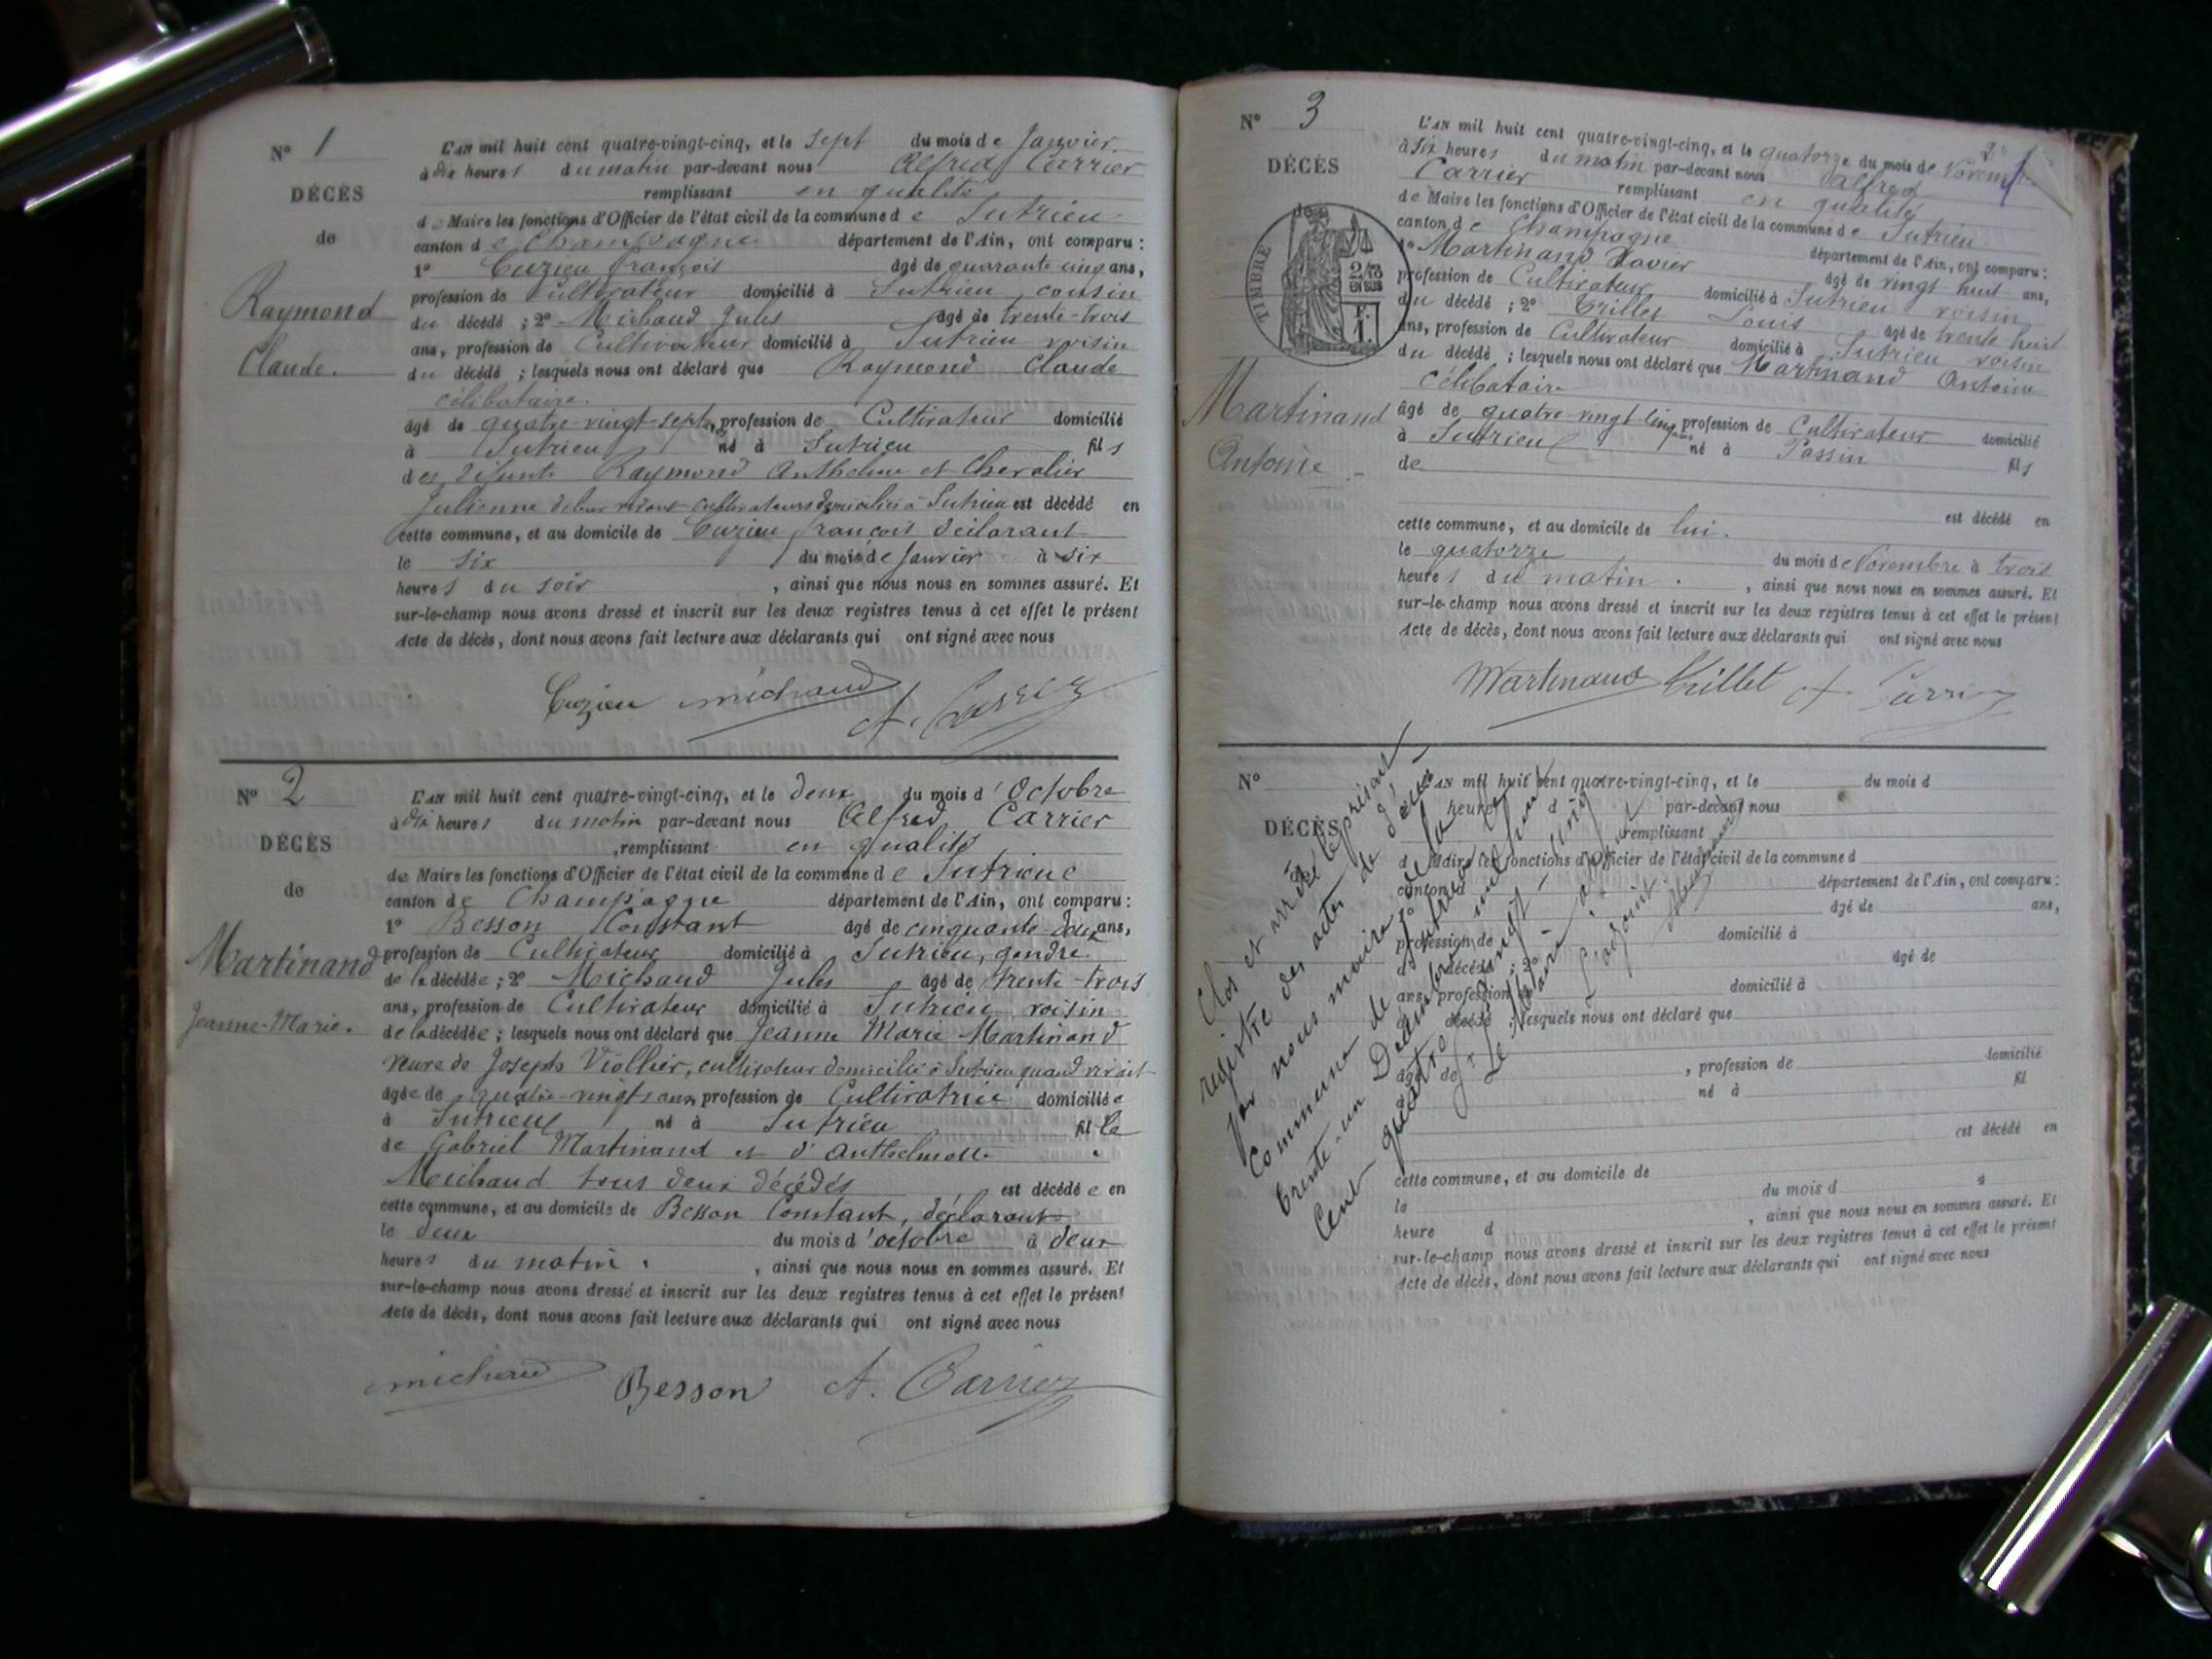 N° 1
DÉCÈS
de
Raymond
Claude.
L'AN mil huit cent quatre-vingt-cinq, et le sept du mois de Janvier
à dix heures du matin par-devant nous Alfred Carrier
remplissant en qualité
de Maire les fonctions d'Officier de l'état civil de la commune de Sutrieu
canton de Champagne département de l'Ain, ont comparu :
1° Cuzieu françois âgé de quarante cinq ans,
profession de Cultivateur domicilié à Sutrieu, cousin
du décédé ; 2° Michaud Jules âgé de trente-trois
ans, profession de Cultivateur domicilié à Sutrieu voisin
du décédé ; lesquels nous ont déclaré que Raymond Claude
célibataire.
âgé de quatre-vingt-sept ans, profession de Cultivateur domicilié
à Sutrieu né à Sutrieu fils
des défunts Raymond Anthelme et Chevalier
Julienne de leur vivant cultivateurs domiciliés à Sutrieu est décédé en
cette commune, et au domicile de Cuzieu françois déclarant
le six du mois de Janvier à six
heures du soir , ainsi que nous nous en sommes assuré. Et
sur-le-champ nous avons dressé et inscrit sur les deux registres tenus à cet effet le présent
Acte de décès, dont nous avons fait lecture aux déclarants qui ont signé avec nous
Cuzieu michaud A. Carrier
N° 2
DÉCÈS
de
Martinand
Jeanne-Marie.
L'AN mil huit cent quatre-vingt-cinq, et le deux du mois d'Octobre
à dix heures du matin par-devant nous Alfred Carrier
remplissant en qualité
de Maire les fonctions d'Officier de l'état civil de la commune de Sutrieu
canton de Champagne département de l'Ain, ont comparu :
1° Besson Constant âgé de cinquante-deux ans,
profession de Cultivateur domicilié à Sutrieu, gendre
de la décédée ; 2° Michaud Jules âgé de trente-trois
ans, profession de Cultivateur domicilié à Sutrieu voisin
de la décédée ; lesquels nous ont déclaré que Jeanne Marie Martinand
veuve de Joseph Viollier, cultivateur domicilié à Sutrieu quand vivait
âgée de quatre-vingts ans, profession de Cultivatrice domiciliée
à Sutrieu né à Sutrieu fille
de Gabriel Martinand et d'Anthelmette
Michaud tous deux décédés est décédée en
cette commune, et au domicile de Besson Constant, déclarant
le deux du mois d'octobre à deux
heures du matin. , ainsi que nous nous en sommes assuré. Et
sur-le-champ nous avons dressé et inscrit sur les deux registres tenus à cet effet le présent
Acte de décès, dont nous avons fait lecture aux déclarants qui ont signé avec nous
michaud Besson A. Carrier
N° 3
DÉCÈS
de
TIMBRE
2/10
EN SUS
F.
1.
Martinand
Antoine
L'AN mil huit cent quatre-vingt-cinq, et le quatorze du mois de Novembre
à six heures du matin par-devant nous Alfred
Carrier remplissant en qualité
de Maire les fonctions d'Officier de l'état civil de la commune de Sutrieu
canton de Champagne département de l'Ain, ont comparu :
1° Martinand Xavier âgé de vingt huit ans,
profession de Cultivateur domicilié à Sutrieu voisin
du décédé ; 2° Trillet Louis âgé de trente huit
ans, profession de Cultivateur domicilié à Sutrieu voisin
du décédé ; lesquels nous ont déclaré que Martinand Antoine
célibataire
âgé de quatre-vingt-cinq ans, profession de Cultivateur domicilié
à Sutrieu né à Passin fils
de
est décédé en
cette commune, et au domicile de lui.
le quatorze du mois de Novembre à trois
heures du matin. , ainsi que nous nous en sommes assuré. Et
sur-le-champ nous avons dressé et inscrit sur les deux registres tenus à cet effet le présent
Acte de décès, dont nous avons fait lecture aux déclarants qui ont signé avec nous
Martinand Trillet A. Carrier
N°
DÉCÈS
L'AN mil huit cent quatre-vingt-cinq, et le du mois d
heure d par-devant nous
remplissant
d Maire les fonctions d'Officier de l'état civil de la commune d
canton d département de l'Ain, ont comparu :
âgé de ans,
profession de domicilié à
d décédé ; 2° âgé de
ans, profession d domicilié à
d décédé ; lesquels nous ont déclaré que
âgé de , profession de domicilié
à né à fil
est décédé en
cette commune, et au domicile de
le du mois d à
heure d , ainsi que nous nous en sommes assuré. Et
sur-le-champ nous avons dressé et inscrit sur les deux registres tenus à cet effet le présent
Acte de décès, dont nous avons fait lecture aux déclarants qui ont signé avec nous
Clos et arrêté le présent
registre des actes de décès
par nous maire de la
Commune de Sutrieu le
trente-un Décembre mil huit
cent quatre vingt-cinq
Le Maire
L'adjoint